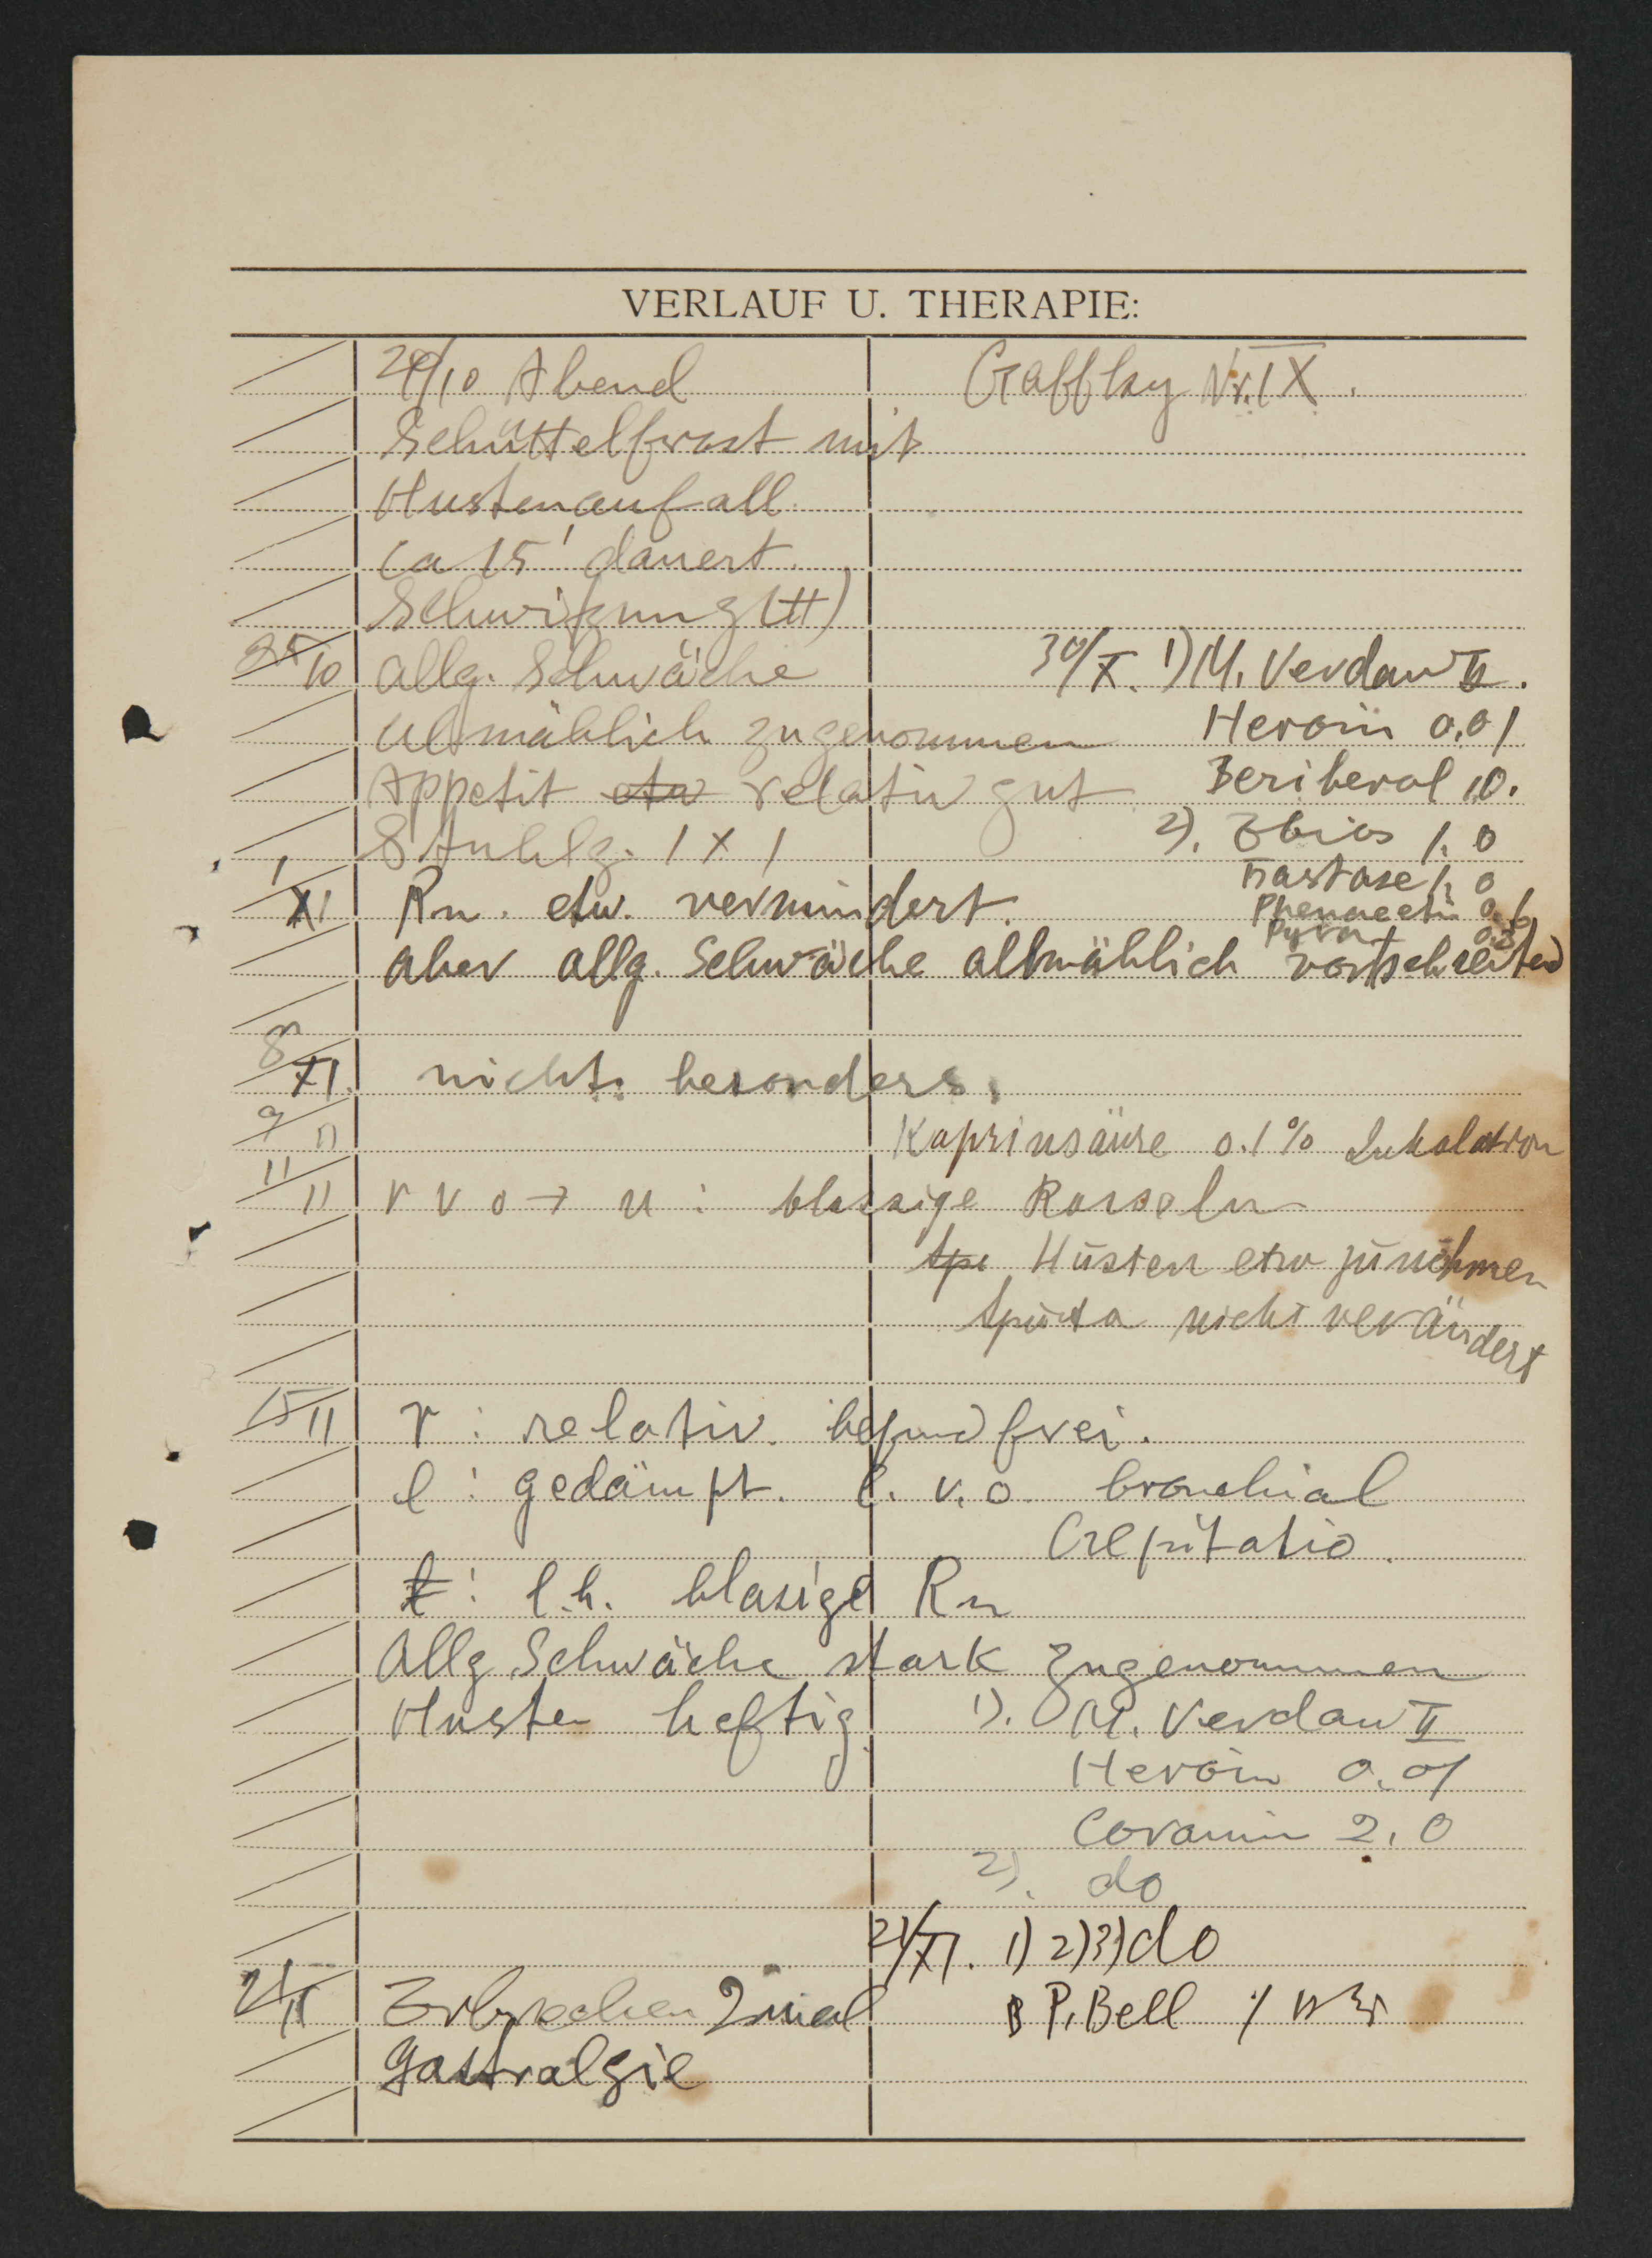 VERLAUF U. THERAPIE:
24/10 Abend Gaffky Nr. IX.
Schüttelfrost mit
Hustenanfall
ca 15' dauert.
Schwitzung (++)
25/10 allg. Schwäche 30/X. 1) M. Verdau II.
allmählich zugenommen Heroin 0.01
Appetit etw relativ gut Beriberol 10.
Stuhlg. 1 x 1 2). Ebios 1.0
Tiastase 1.0
1/XI Rn. etw. vermindert. Phenacetin 0.6
Pyra
aber allg. Schwäche allmählich vortschreited
8/XI. nichts besonders.
9/11 Kaprinsäure 0.1% Inhalation
11/11 r v o → u : blasige Rasseln
Spu Husten etw zunehmen
Sputa nicht verändert
15/11 r : relativ. befundfrei.
l : gedämpt. l. v. o. bronchial
Crepitatio.
l.h. blasige Rn
Allg Schwäche stark zugenommen
Husten heftig. 1). M. Verdau II
Heroin 0.01
Coramin 2.0
2). do
21/XI. 1) 2) 3) do
21/11 Erbrechen 2 mal P. Bell
Gastralgie